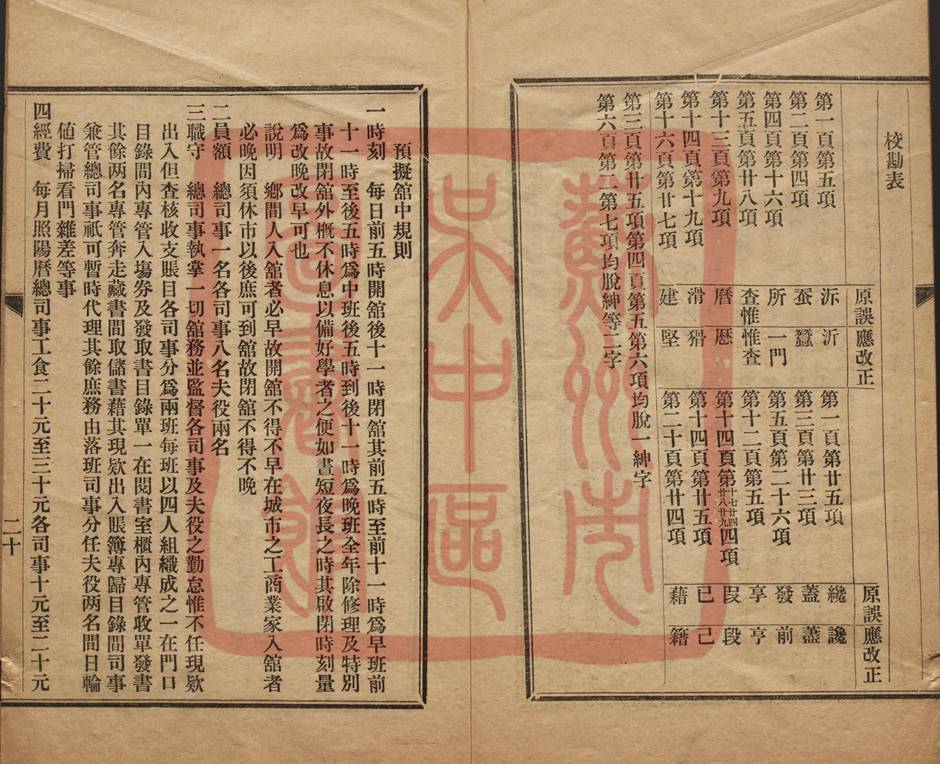 校勘表
原誤 應改正
第一頁第五項 泝 沂
第二頁第四項 蚕 蠶
第四頁第十六項 所 一門
第五頁第廿八項 查惟 惟查
第十三頁第九項 曆 厯
第十四頁第十九項 滑 猾
第十六頁第廿七項 建 堅
原誤 應改正
第一頁第廿五項 纔 讒
第三頁第廿三項 蓋 藎
第五頁第二十六項 發 前
第十二頁第五項 享 亨
第十四頁第十七廿四廿八廿九四項 叚 段
第十四頁第廿五項 已 己
第二十頁第廿四項 藉 籍
第三頁第廿五項第四頁第五第六項均脫一紳字
第六頁第二第七項均脫紳等二字
預擬舘中規則
一時刻 每日前五時開舘後十一時閉舘其前五時至前十一時爲早班前
十一時至後五時爲中班後五時到後十一時爲晚班全年除修理及特別
事故閉舘外槪不休息以備好學者之便如晝短夜長之時其啟閉時刻量
爲改晚改早可也
說明 鄉間人入舘者必早故開舘不得不早在城市之工商業家入舘者
必晚因須休市以後庶可到舘故閉舘不得不晚
二員額 總司事一名各司事八名夫役兩名
三職守 總司事執掌一切舘務並監督各司事及夫役之勤怠惟不任現欵
出入但查核收支賬目各司事分爲兩班每班以四人組織成之一在門口
目錄間內專管入塲劵及發取書目錄單一在閱書室櫃內專管收單發書
其餘两名專管奔走藏書間取儲書藉其現欵出入賬簿專歸目錄間司事
兼管總司事祇可暫時代理其餘庶務由落班司事分任夫役两名間日輪
値打掃看門雜差等事
四經費 每月照陽曆總司事工食二十元至三十元各司事十元至二十元
二十
蘇州市
吳中區
圖書館